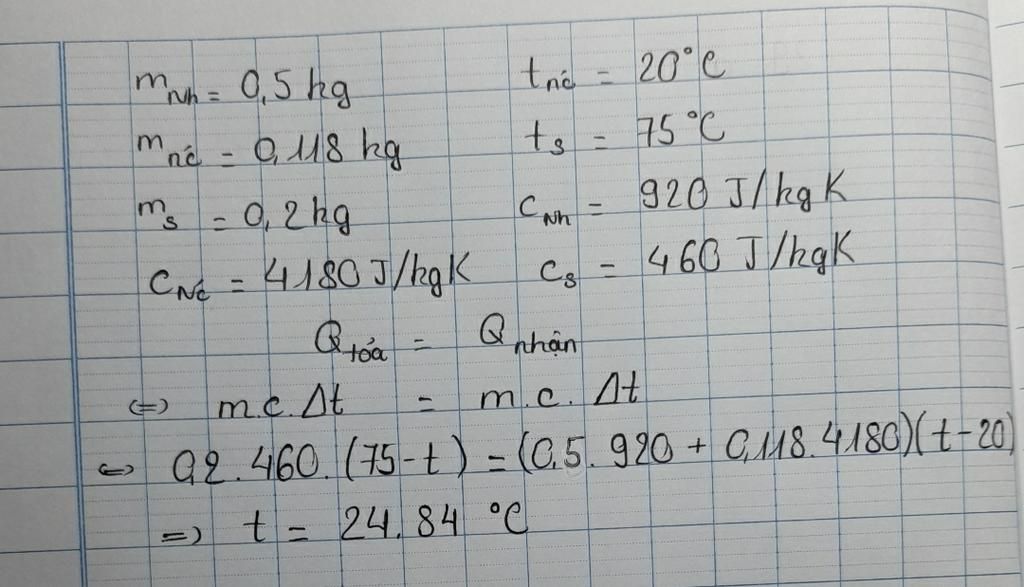 m_Nh = 0,5 kg t_nć = 20°C
m_nć = 0,118 kg t_s = 75°C
m_s = 0,2 kg c_Nh = 920 J/kgK
c_Nć = 4180 J/kgK c_s = 460 J/kgK
Q_tỏa = Q_nhận
<=> m.c.Δt = m.c.Δt
<=> 0,2.460.(75-t) = (0,5.920 + 0,118.4180)(t-20)
=> t = 24,84 °C